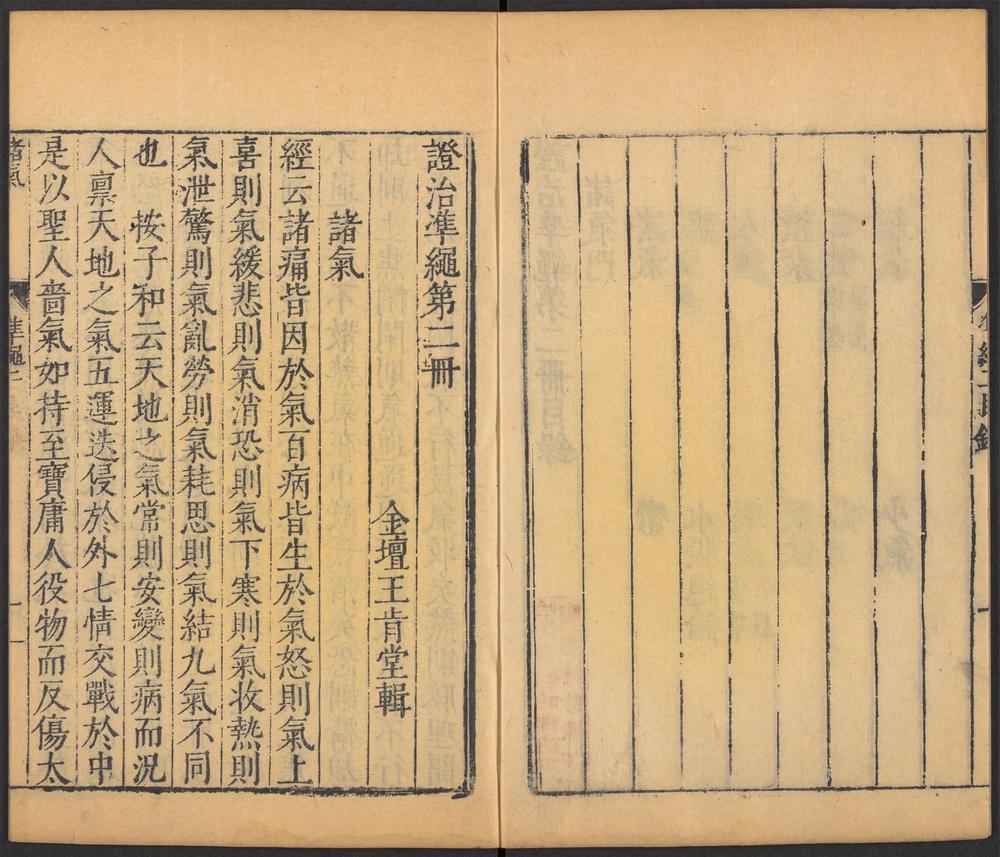 證治準繩第二冊
金壇王肯堂輯
諸氣
經云諸痛皆因於氣百病皆生於氣怒則氣上
喜則氣緩悲則氣消恐則氣下寒則氣收熱則
氣泄驚則氣亂勞則氣耗思則氣結九氣不同
也　按子和云天地之氣常則安變則病而況
人禀天地之氣五運迭侵於外七情交戰於中
是以聖人嗇氣如持至寶庸人役物而反傷太
諸氣
準繩二
一